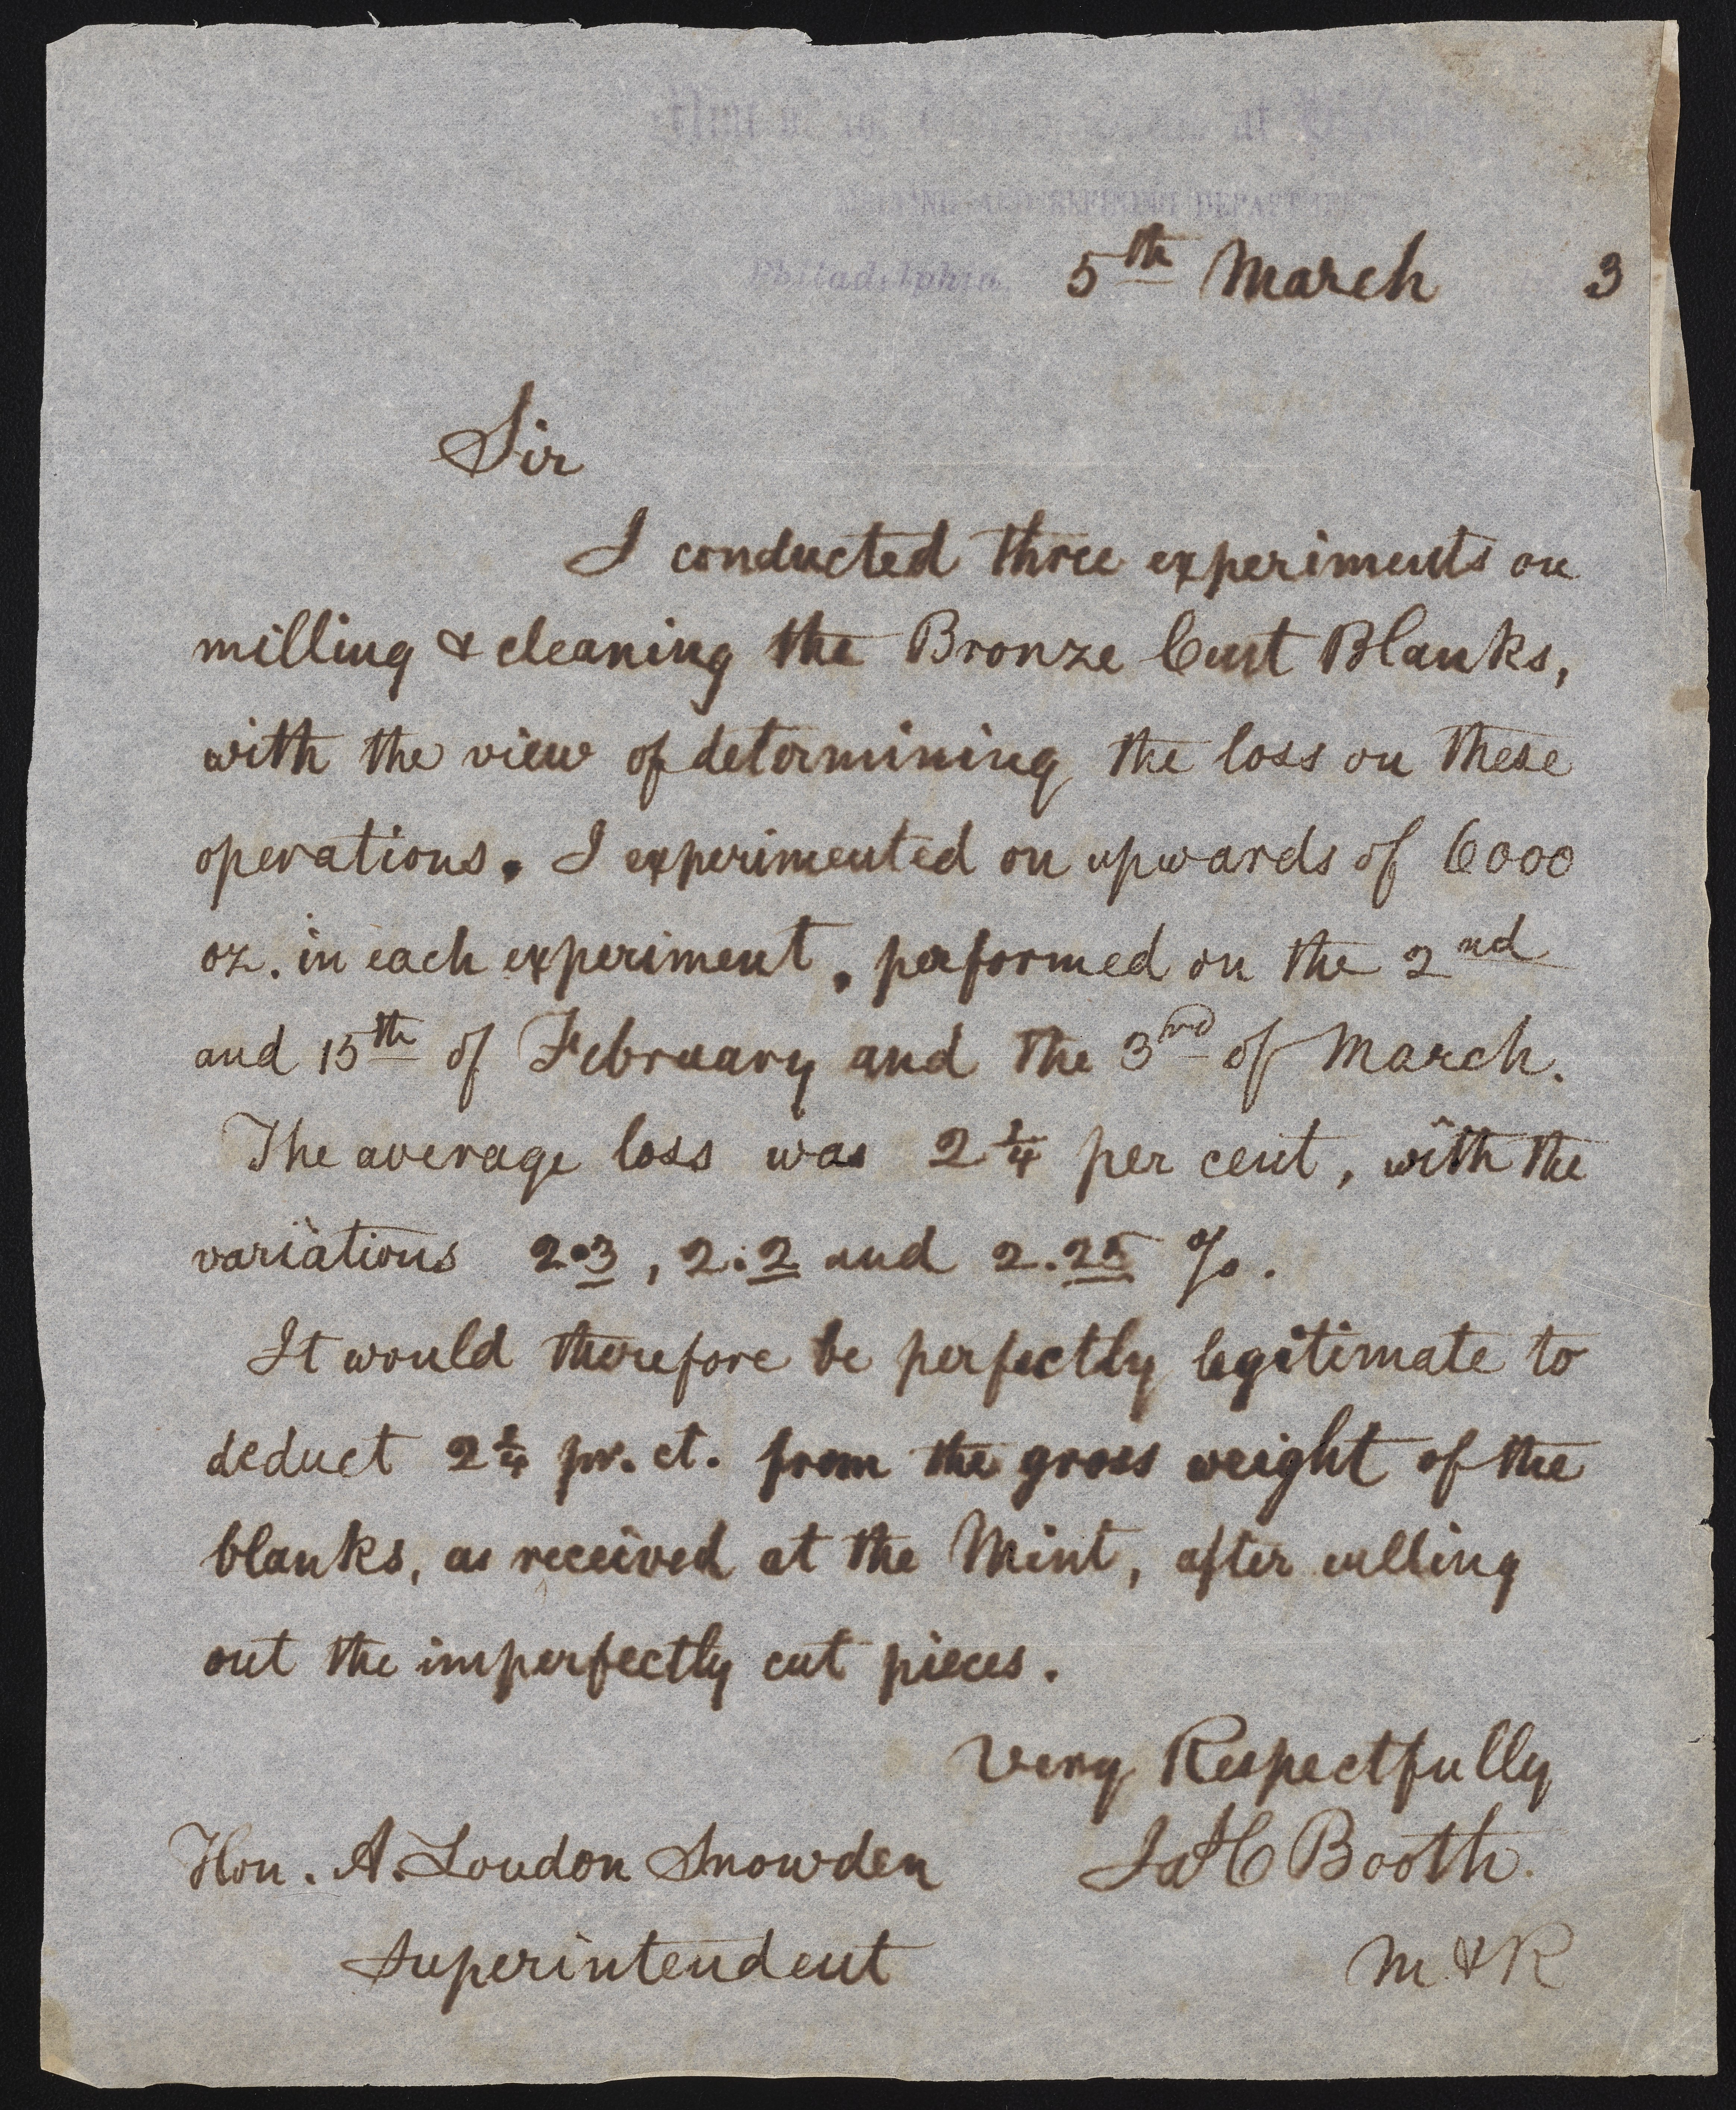 Mint of the United States at Philadelphia
MELTING AND REFINING DEPARTMENT
Philadelphia 5th March 3
Sir
I conducted three experiments on
milling & cleaning the Bronze Cent Blanks,
with the view of determining the loss on these
operations. I experimented on upwards of 6000
oz. in each experiment, performed on the 2nd
and 15th of February and the 3rd of March.
The average loss was 2 1/4 per cent, with the
variations 2.3, 2.2 and 2.25 %.
It would therefore be perfectly legitimate to
deduct 2 1/4 pr. ct. from the gross weight of the
blanks, as received at the Mint, after culling
out the imperfectly cut pieces.
Very Respectfully
Hon. A. Loudon Snowden Jas C Booth.
Superintendent M & R